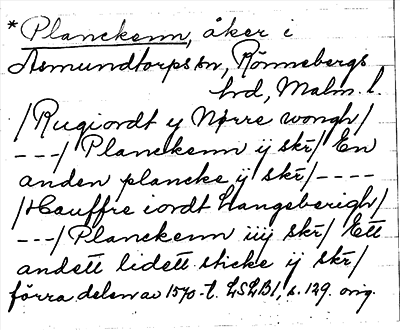 *Planckenn, åker i
Asmundtorps sn, Rönnebergs
hd, Malm. l.
/Rugiordt ij Nørre wongh/
---/ Planckenn ij skr/ En
anden plancke ij skr/ ----
/Hauffre iordt Langeberigh/
---/ Planckenn iiij skr/ Ett
andett lidett sticke ij skr/
förra delen av 1570-t. LSLB1, s. 129. orig.